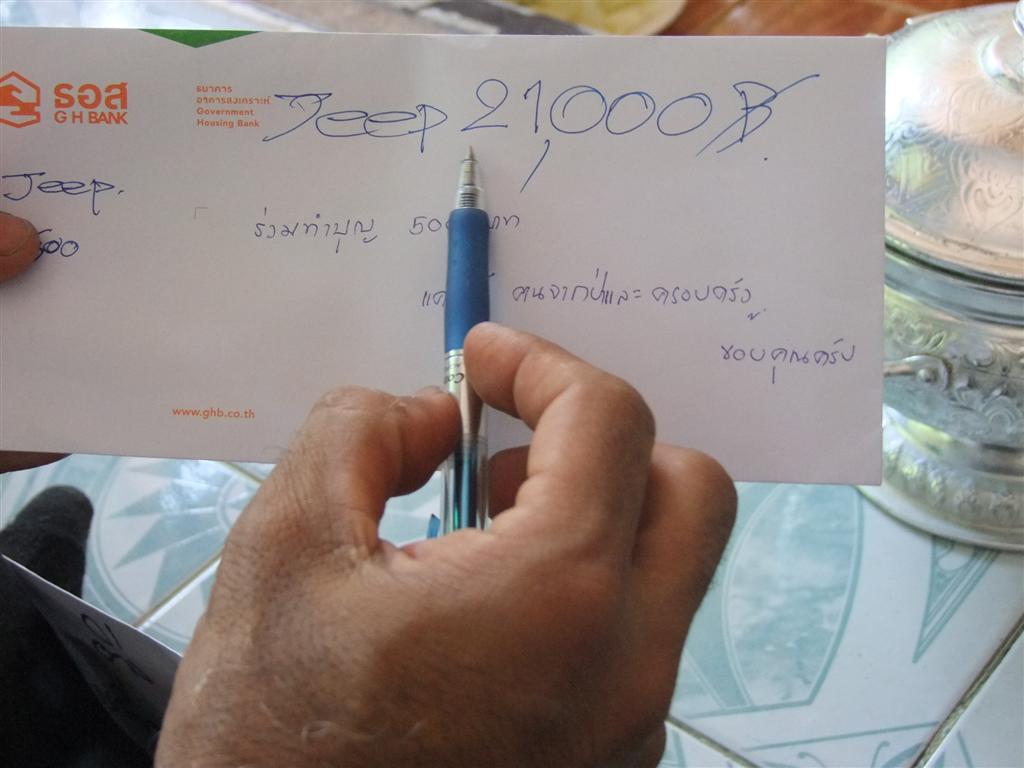 ธอส
G H BANK
ธนาคาร
อาคารสงเคราะห์
Government
Housing Bank
Jeep 21,000 ฿
Jeep.
500
ร่วมทำบุญ
และ ครอบครัว
ขอบคุณครับ
www.ghb.co.th